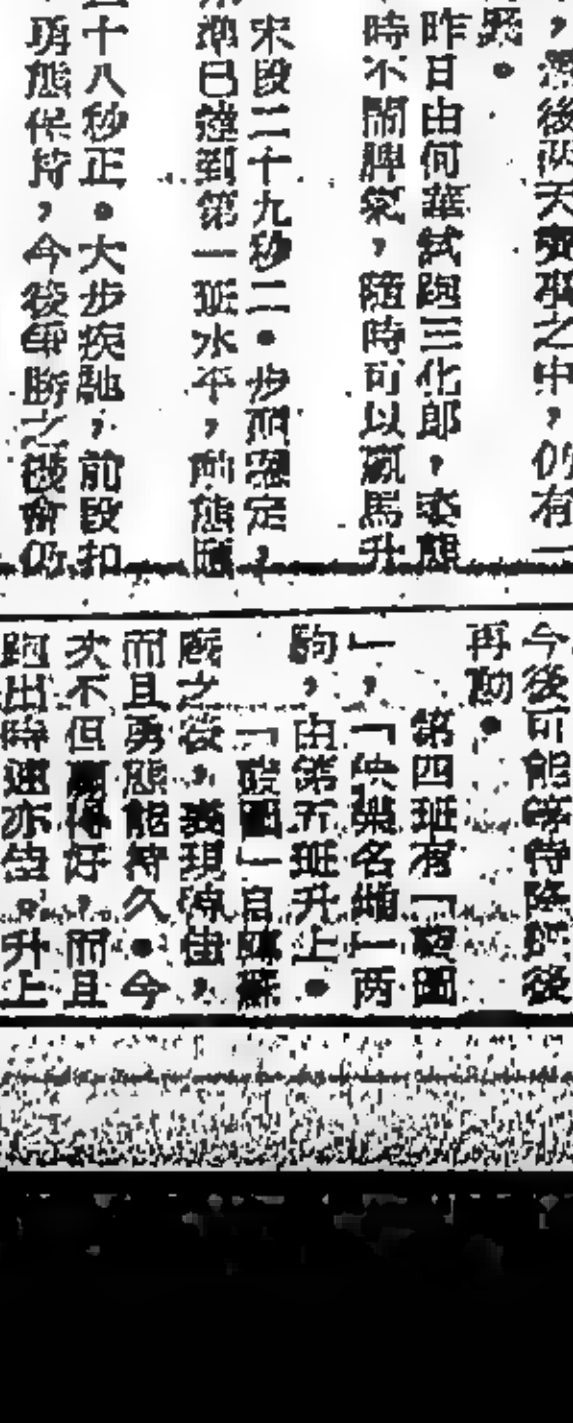 後兩天賽事之中，仍有一
昨日由何華試跑三化郎，姿態
時不鬧脾氣，隨時可以贏馬升
末段二十九秒二。步履穩定，
準已達到第一班水平，
十八秒正。大步疾馳，前段扣
勇態保持，今後爭勝之機會仍
今後可能等待降班後
再動。
第四班有「凱圖
」，「快樂名雌」兩
駒，由第五班升上。
圖」自
廐之後，表現得佳，
而且勇態能持久。今
次不但贏得好，而且
跑出時速亦佳。升上